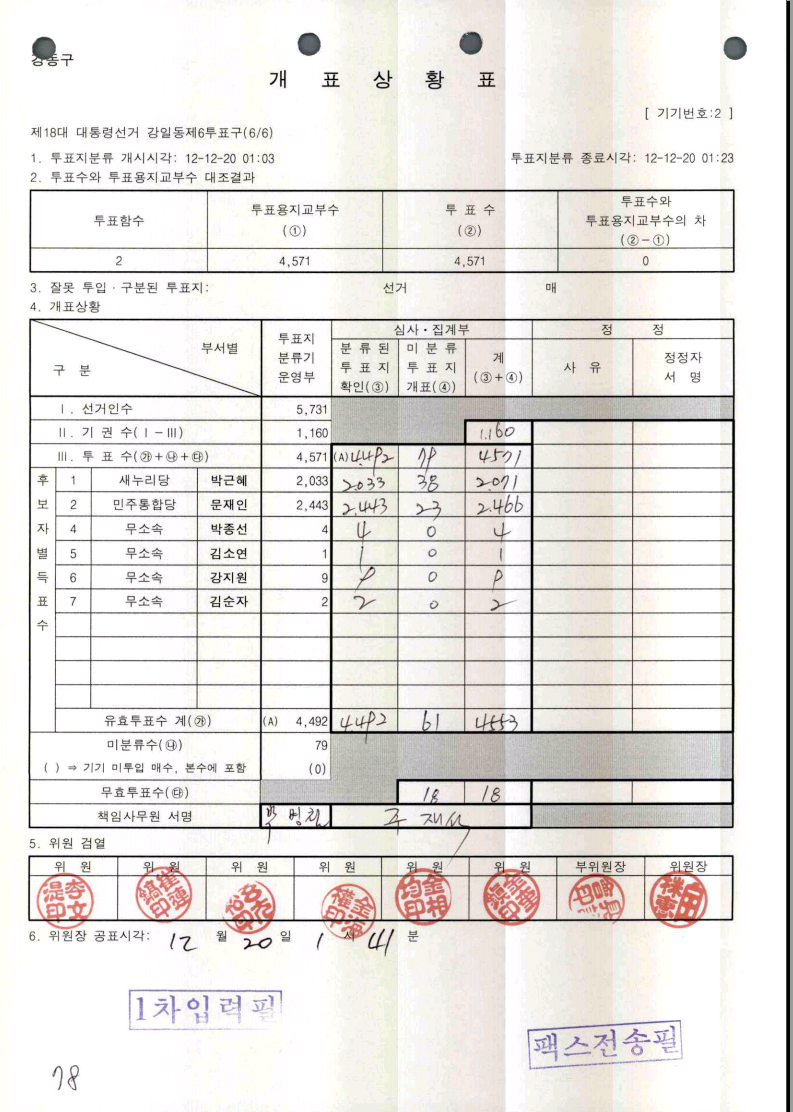 강동구
개 표 상 황 표
[ 기기번호:2 ]
제18대 대통령선거 강일동제6투표구(6/6)
1. 투표지분류 개시시각: 12-12-20 01:03 투표지분류 종료시각: 12-12-20 01:23
2. 투표수와 투표용지교부수 대조결과
투표함수 투표용지교부수 (①) 투 표 수 (②) 투표수와 투표용지교부수의 차 (②-①)
2 4,571 4,571 0
3. 잘못 투입·구분된 투표지: 선거 매
4. 개표상황
부서별 구 분 투표지 분류기 운영부 심사·집계부 정 정
분류된 투표지 확인(③) 미분류 투표지 개표(④) 계 (③+④) 사 유 정정자 서 명
Ⅰ. 선거인수 5,731
Ⅱ. 기 권 수(Ⅰ-Ⅲ) 1,160 1.160
Ⅲ. 투 표 수(㉮+㉯+㉰) 4,571 (A) 4.492 79 4571
후보자별득표수
1 새누리당 박근혜 2,033 2.033 38 2.071
2 민주통합당 문재인 2,443 2.443 23 2.466
4 무소속 박종선 4 4 0 4
5 무소속 김소연 1 1 0 1
6 무소속 강지원 9 9 0 9
7 무소속 김순자 2 2 0 2
유효투표수 계(㉮) (A) 4,492 4.492 61 4553
미분류수(㉯) 79
( ) ⇒ 기기 미투입 매수, 본수에 포함 (0)
무효투표수(㉰) 18 18
책임사무원 서명
5. 위원 검열
위 원 위 원 위 원 위 원 위 원 위 원 부위원장 위원장
6. 위원장 공표시각: 12 월 20 일 1 시 41 분
1차입력필
팩스전송필
78